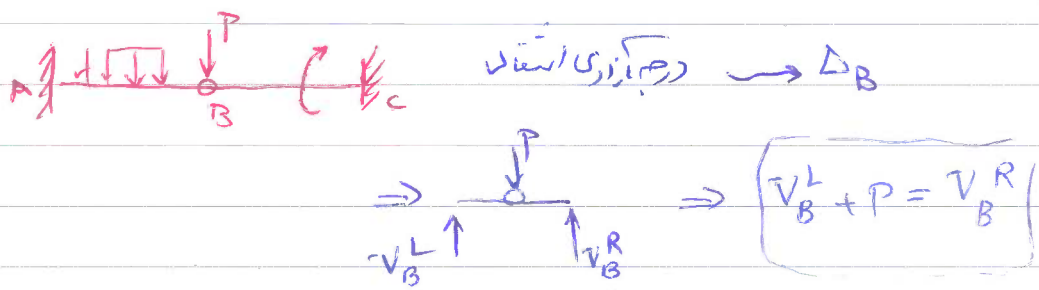 P
A B C
درجه آزادی انتقال → Δ_B
P
⇒ V_B^L V_B^R ⇒ V_B^L + P = V_B^R